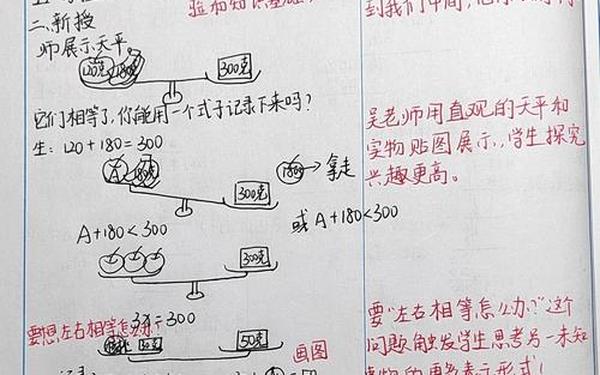 二、新授
师展示天平。
120克 180克 300克
它们相等了,你能用一个式子记录下来吗?
生: 120+180=300
A 180克 300克
180克 → 拿走
A+180<300
或 A+180<300
300克
3x=300
要想左右相等怎么办?
50克
画图
到我们中间,
吴老师用直观的天平和
实物贴图展示,学生探究
兴趣更高。
要"左右相等怎么办?"这个
问题触发学生思考另一未知